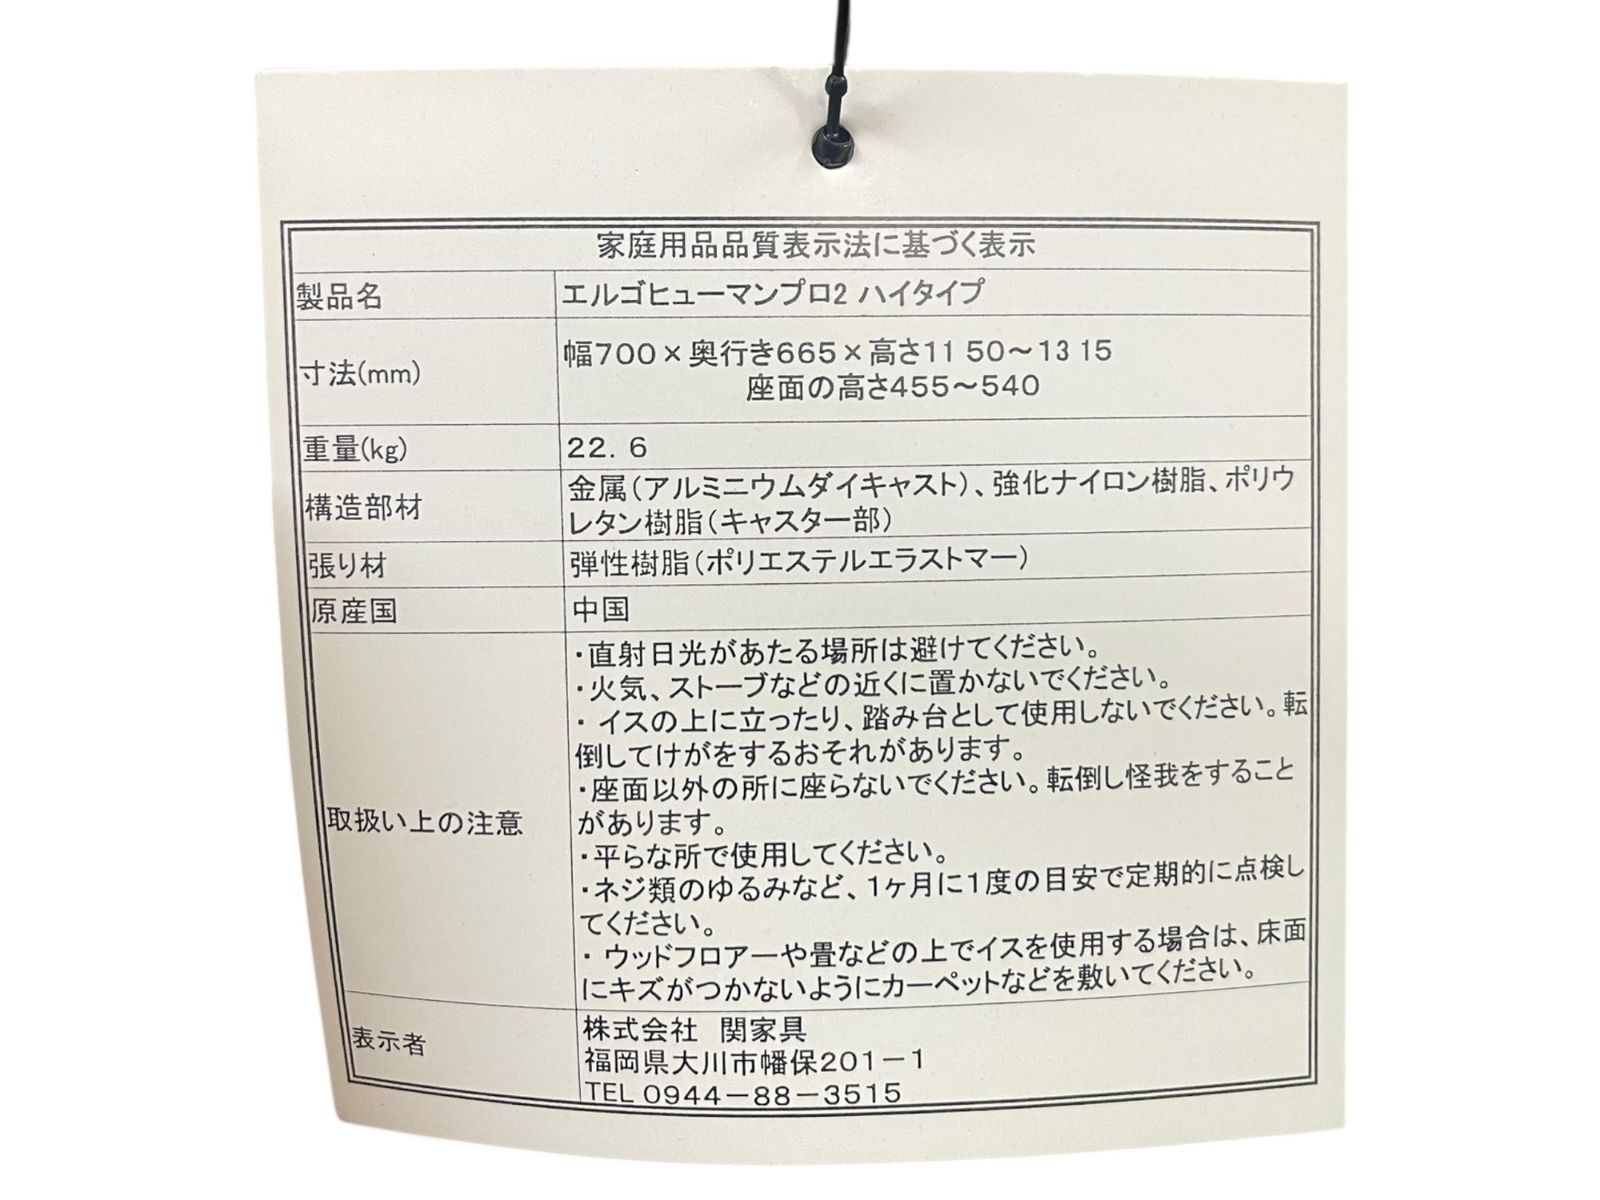 家庭用品品質表示法に基づく表示
製品名 エルゴヒューマンプロ2 ハイタイプ
寸法(mm) 幅700×奥行き665×高さ1150〜1315
座面の高さ455〜540
重量(kg) 22.6
構造部材 金属(アルミニウムダイキャスト)、強化ナイロン樹脂、ポリウ
レタン樹脂(キャスター部)
張り材 弾性樹脂(ポリエステルエラストマー)
原産国 中国
取扱い上の注意
・直射日光があたる場所は避けてください。
・火気、ストーブなどの近くに置かないでください。
・ イスの上に立ったり、踏み台として使用しないでください。転
倒してけがをするおそれがあります。
・座面以外の所に座らないでください。転倒し怪我をすること
があります。
・平らな所で使用してください。
・ネジ類のゆるみなど、1ヶ月に1度の目安で定期的に点検し
てください。
・ ウッドフロアーや畳などの上でイスを使用する場合は、床面
にキズがつかないようにカーペットなどを敷いてください。
表示者 株式会社 関家具
福岡県大川市幡保201−1
TEL 0944−88−3515